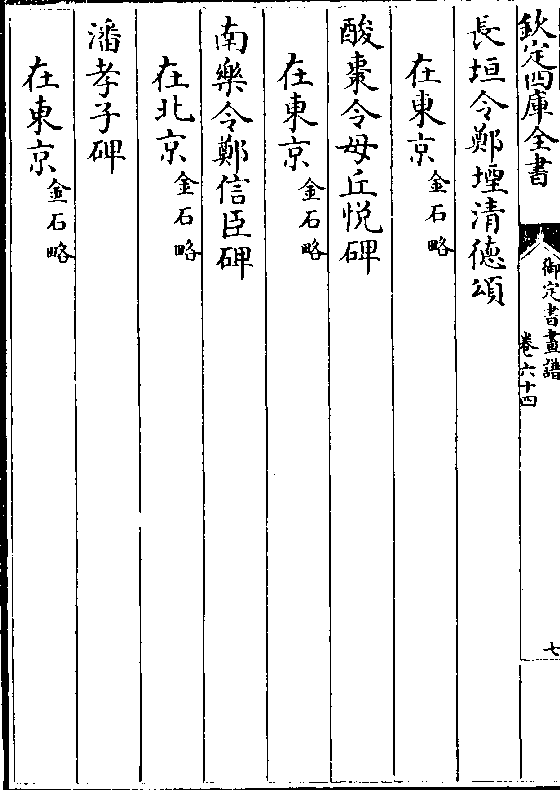 欽定四庫全書
御定書畫譜
卷六十四
七
長垣令鄭壥清德頌
在東京金石略
酸棗令毋丘悅碑
在東京金石略
南樂令鄭信臣碑
在北京金石略
潘孝子碑
在東京金石略